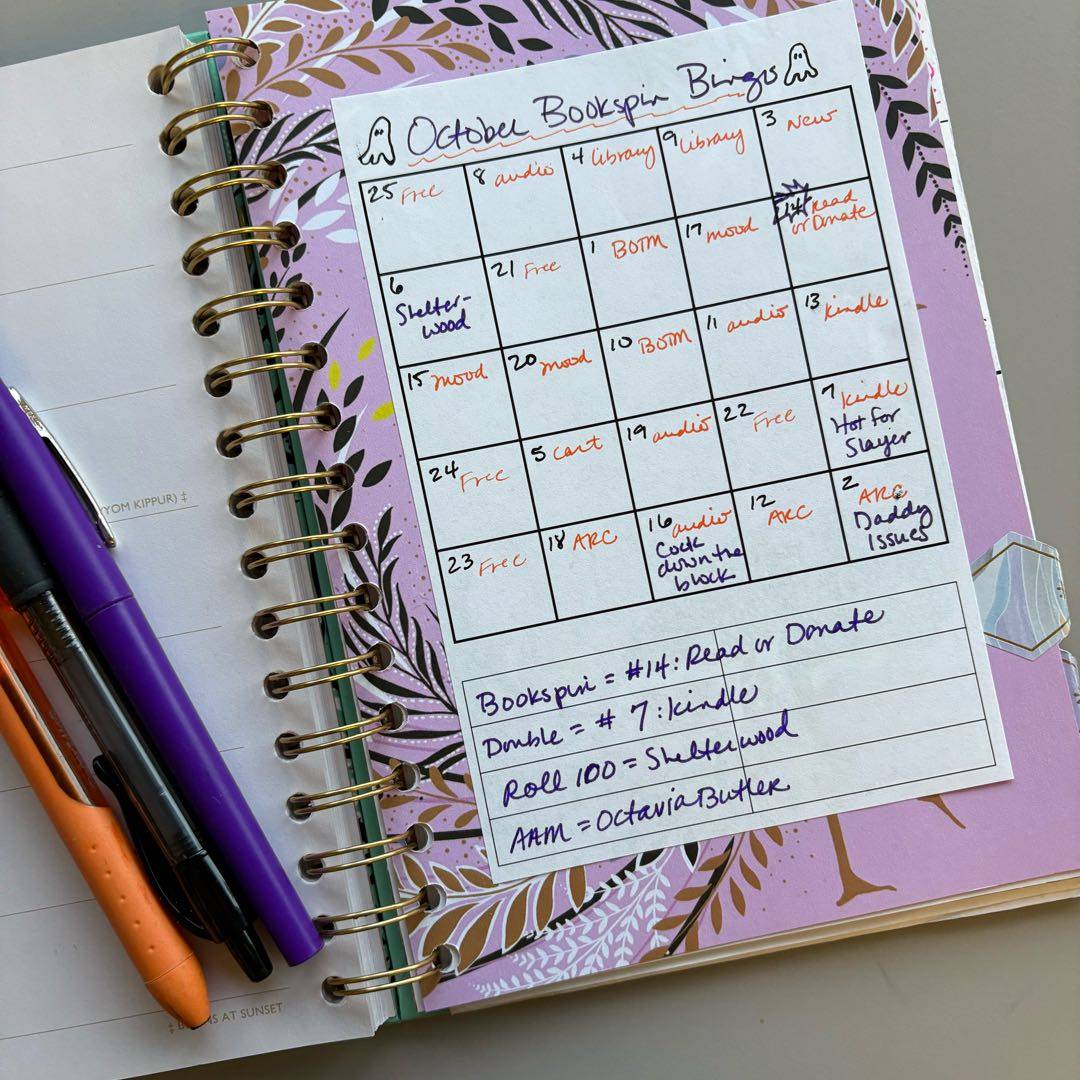 October Bookspin Bingo
25 Free
8 audio
4 library
9 library
3 New
6
Shelter-
wood
21 Free
1 BOTM
17 mood
14 Read
or Donate
15 mood
20 mood
10 BOTM
11 audio
13 kindle
24 Free
5 cart
19 audio
22 Free
7 kindle
Hot for
Slayer
23 Free
18 ARC
16 audio
Cock
down the
block
12 ARC
2 ARC
Daddy
Issues
Bookspin = #14: Read or Donate
Double = # 7: kindle
Roll 100 = Shelterwood
AAM = Octavia Butler
YOM KIPPUR) ‡
AT SUNSET